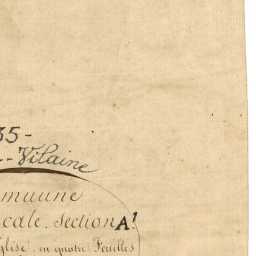 35-
--Vilaine
muune
cale. Section A¹
glise. en quatre Feuilles